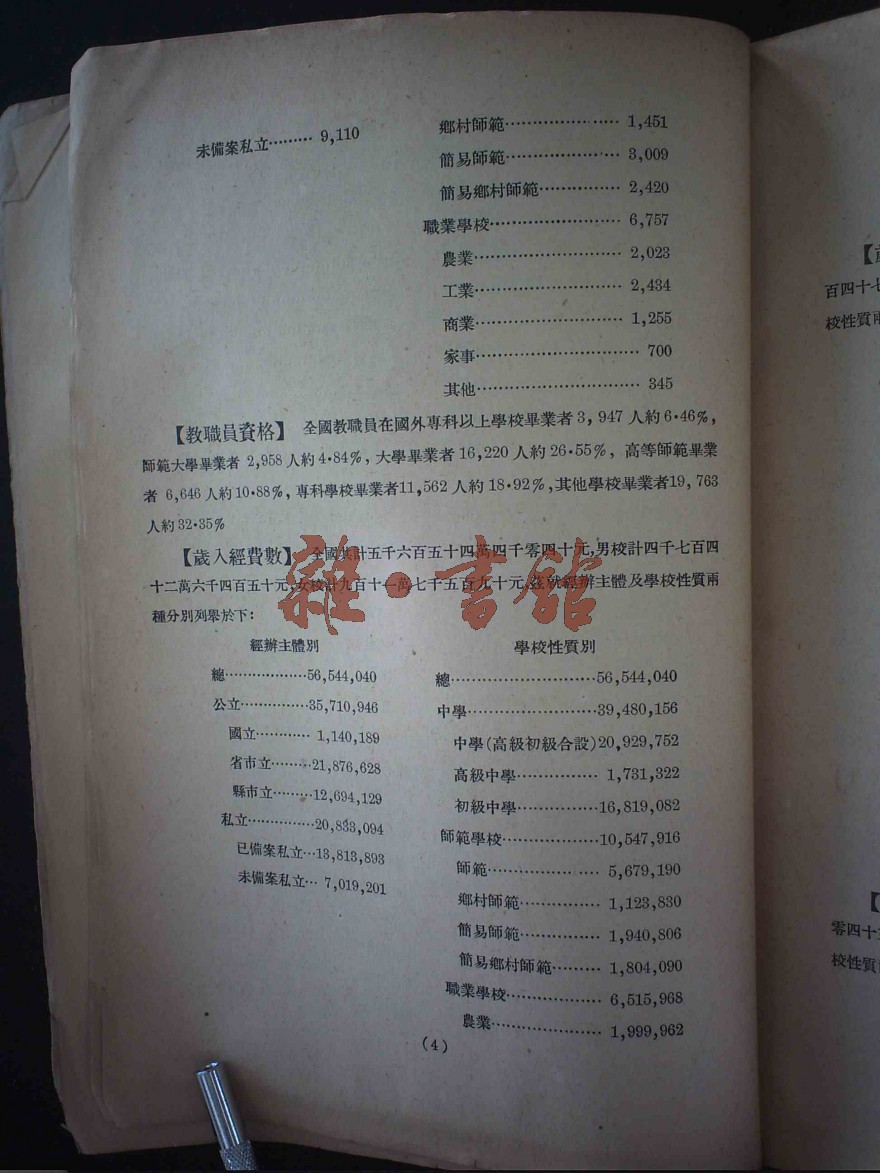 未備案私立……… 9,110
鄉村師範………………… 1,451
簡易師範………………… 3,009
簡易鄉村師範…………… 2,420
職業學校…………………… 6,757
農業……………………… 2,023
工業……………………… 2,434
商業……………………… 1,255
家事………………………… 700
其他………………………… 345
【教職員資格】 全國教職員在國外專科以上學校畢業者3,947 人約6·46%,
師範大學畢業者 2,958 人約4·84%, 大學畢業者16,220 人約26·55%, 高等師範畢業
者 6,646 人約10·88%, 專科學校畢業者11,562 人約18·92%,其他學校畢業者19,763
人約32·35%
【歲入經費數】 全國共計五千六百五十四萬四千零四十元,男校計四千七百四
十二萬六千四百五十元,女校計九百十一萬七千五百九十元,茲就經辦主體及學校性質兩
種分別列舉於下:
經辦主體別
總………………56,544,040
公立……………35,710,946
國立………… 1,140,189
省市立………21,876,628
縣市立………12,694,129
私立……………20,833,094
已備案私立…13,813,893
未備案私立… 7,019,201
學校性質別
總………………………56,544,040
中學……………………39,480,156
中學(高級初級合設)20,929,752
高級中學…………… 1,731,322
初級中學……………16,819,082
師範學校………………10,547,916
師範………………… 5,679,190
鄉村師範…………… 1,123,830
簡易師範…………… 1,940,806
簡易鄉村師範……… 1,804,090
職業學校……………… 6,515,968
農業………………… 1,999,962
(4)
雜·書館
百四十七
校性質兩
零四十
校性質